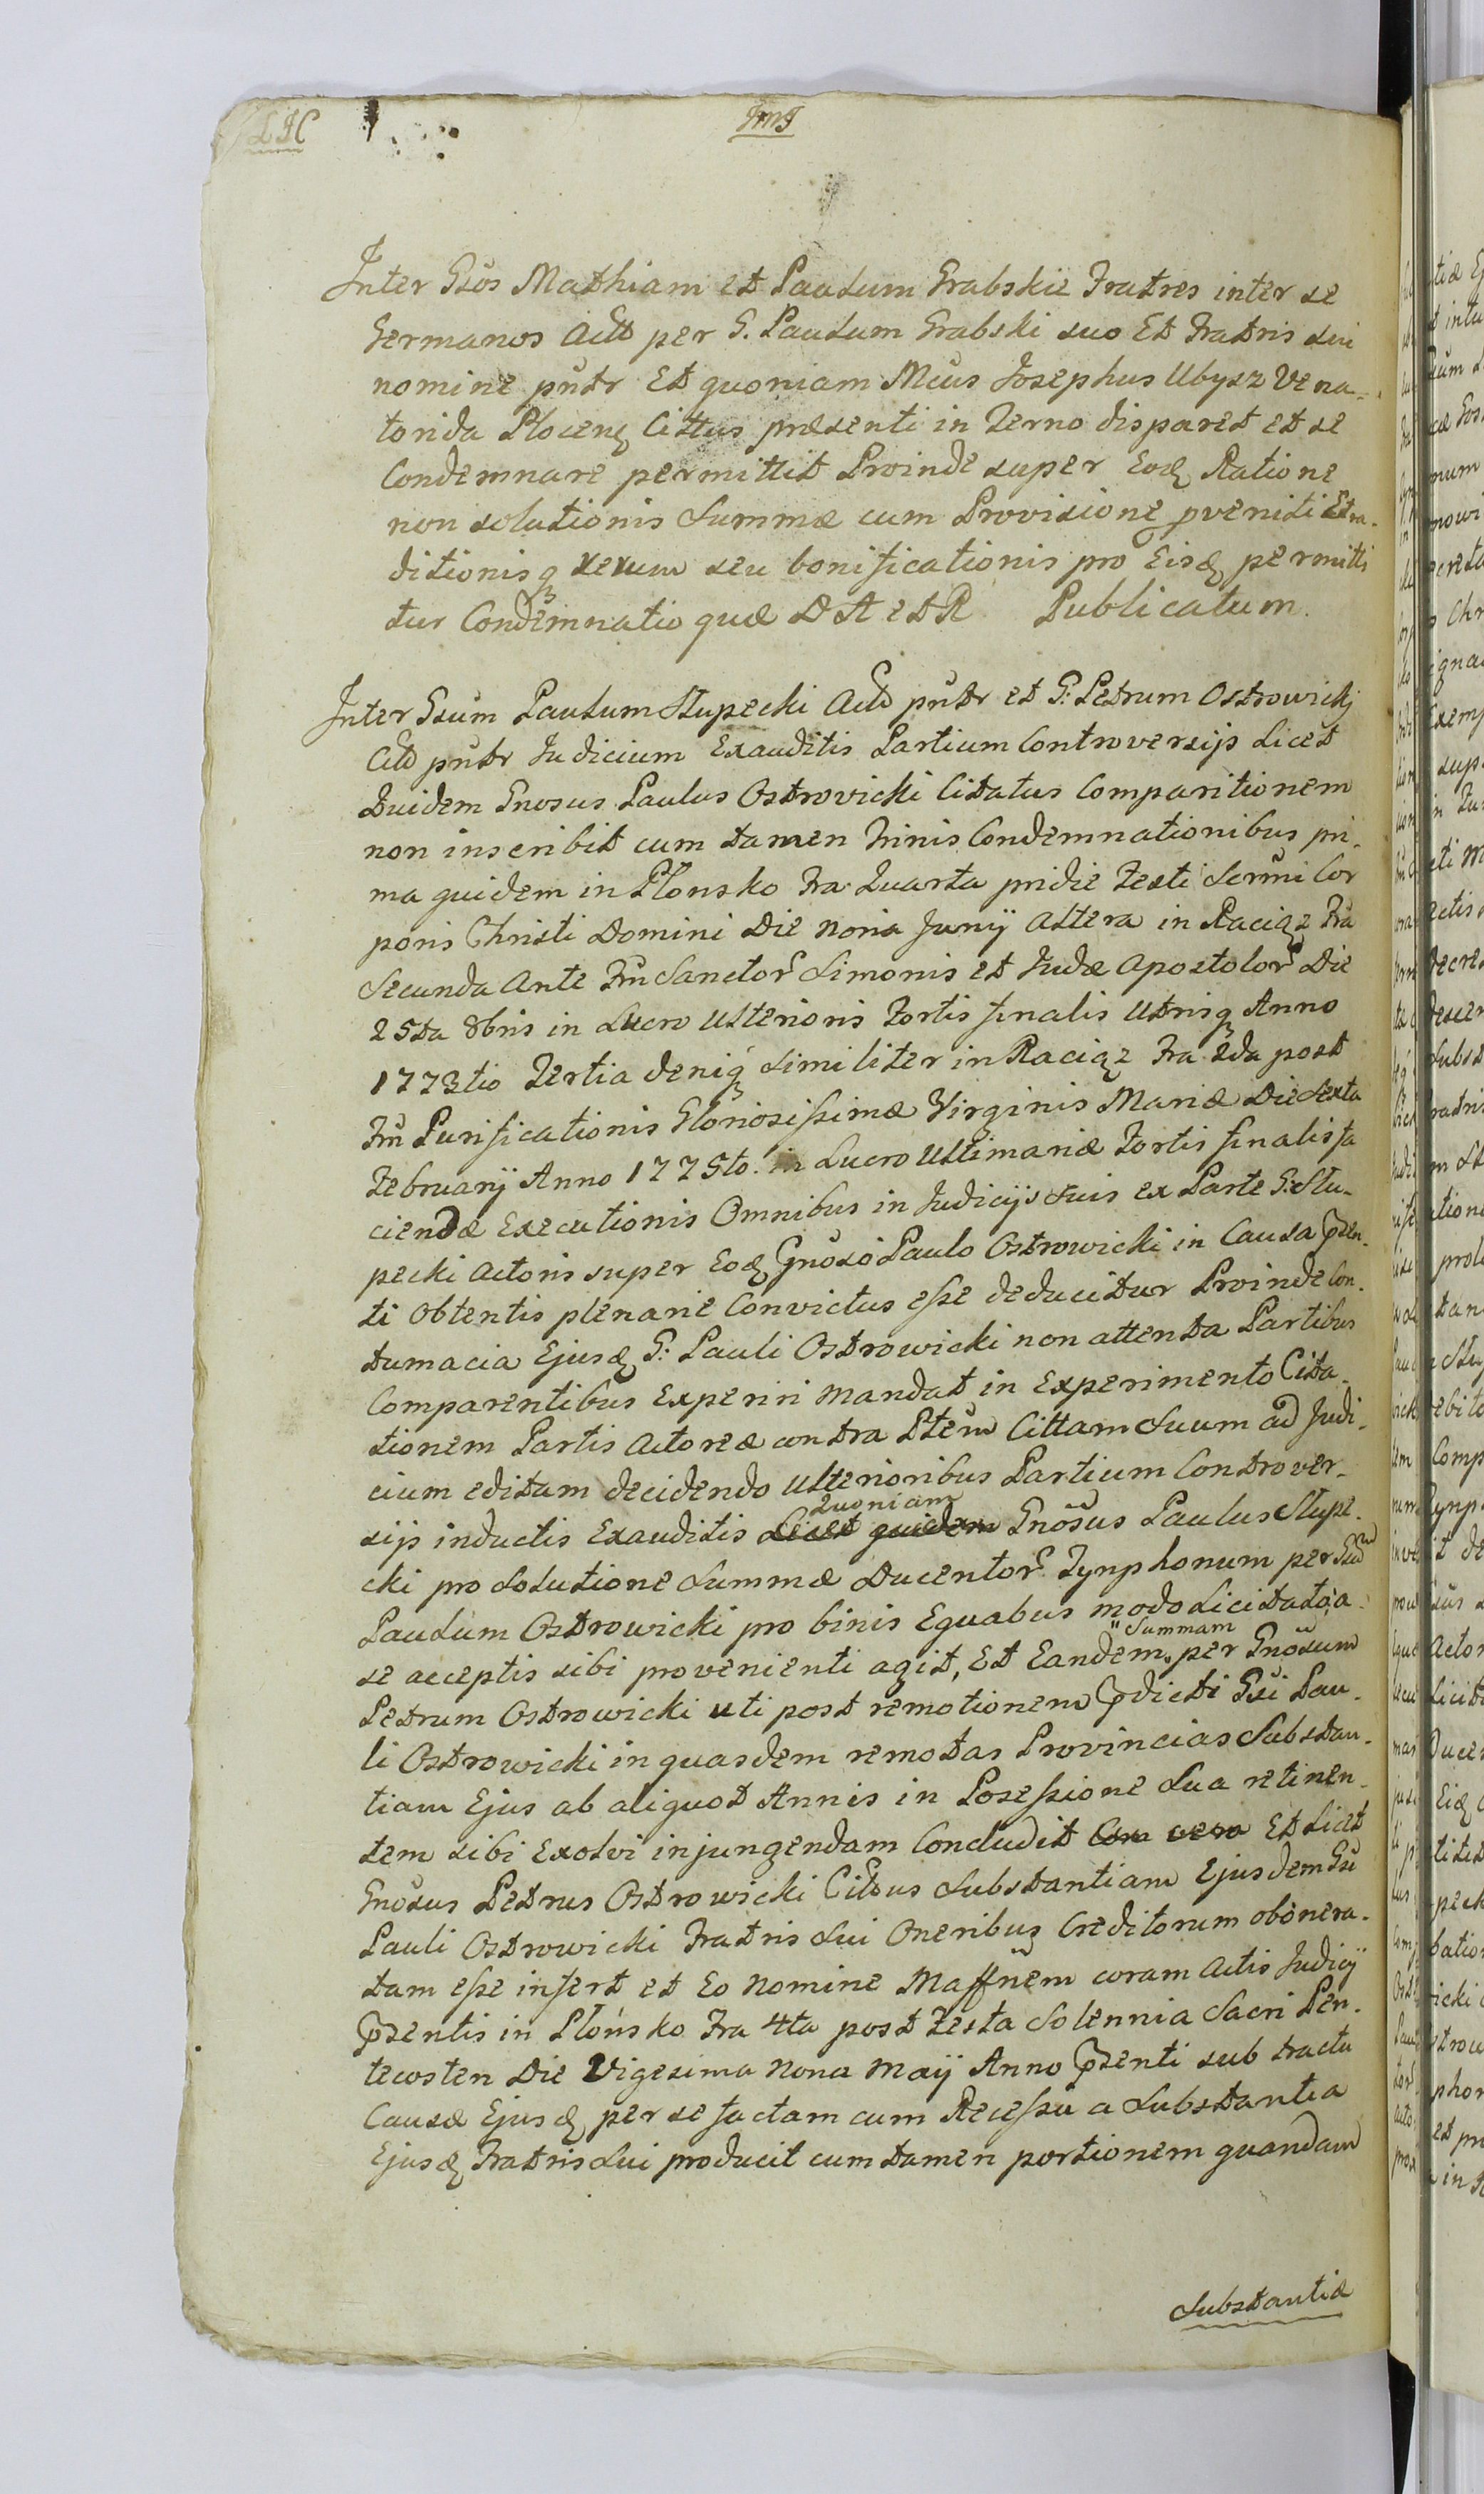 LJC
JmJ
Inter Gsos Mathiam et Paulum Grabskie Fratres inter se
Germanos Actō per G. Paulum Grabski suo Et Fratris sui
nomine pñtr Et quoniam Mcus Josephus Ubysz Vena-
torida Plocenȝ Cittus præsenti in Terno disparet et se
Condemnare permittit Proinde super Eoȝ Ratione
non solutionis Summæ cum Provisione pveniti Extra-
ditionisqȝ rerum seu bonificationis pro Eisȝ permitti
tur Condemnatio quæ D A et R Publicatum.
Inter Gsum Paulum Słupecki Actō pñtr et G: Petrum Ostrowickj
Cittō pñtr Judicium Exauditis Partium Controversijs Licet
Quidem Gnosus Paulus Ostrovicki Citatus Comparitionem
non inscribit cum tamen Trinis Condemnationibus pri-
ma quidem in Płonsko Fra Quarta pridie Festi Scrmi Cor
poris Christi Domini Die Nona Junij altera in Raciąz Fra
Secunda Ante Fm Sanctor Simonis et Judæ Apostolor Die
25ta 8bris in Lucro Ulterioris Fortis finalis Utrisqȝ Anno
1773tio Tertia deniqȝ Similiter in Raciąz Fra 2da post
Fm Purificationis Gloriosissimæ Virginis Mariæ Die Sexta
Februarij Anno 1775to. in Lucro Ultimariæ Fortis finalis fa
ciendæ Executionis Omnibus in Judicijs Suis ex Parte G: Słu-
pecki Actoris super Eoȝ Gnoso Paulo Ostrowicki in Causa pzen-
ti Obtentis plenarie Convictus esse deducitur Proinde Con-
tumacia Ejusȝ G: Pauli Ostrowicki non attenta Partibus
Comparentibus Experiri mandat in Experimento Cita-
tionem Partis Actoreæ contra Ptem Cittam Suum ad Judi-
cium editam decidendo Ulterioribus Partium Controver-
Quoniam
sijs inductis Exauditis Licet quidem Gnosus Paulus Słupe-
cki pro Solutione Summæ Ducentor Tynphonum per Gsum
Paulum Ostrowicki pro binis Equabus modo licitato a
Summam
se acceptis sibi provenienti agit, Et Eandem per Gnosum
Petrum Ostrowicki uti post remotionem pdicti Gsi Pau-
li Ostrowicki in quasdem remotas Provincias Substan-
tiam Ejus ab aliquot Annis in Posessione Sua retinen-
tem sibi Exolvi injungendam Concludit Cum vero Et licet
Gnosus Petrus Ostrowicki Cittus Substantiam Ejusdem Gsi
Pauli Ostrowicki Fratris Sui Oneribus Creditorum obonera-
tam esse infert et Eo Nomine Maffnem coram Actis Judicij
pzentis in Płońsko Fra 4ta post Festa Solennia Sacri Pen-
tecosten Die Vigesima Nona Maij Anno pzenti sub tractu
Causæ Ejusȝ per se factam cum Recessu a Substantia
Ejusȝ Fratris Sui producit cum tamen portionem quandam
Substantiæ